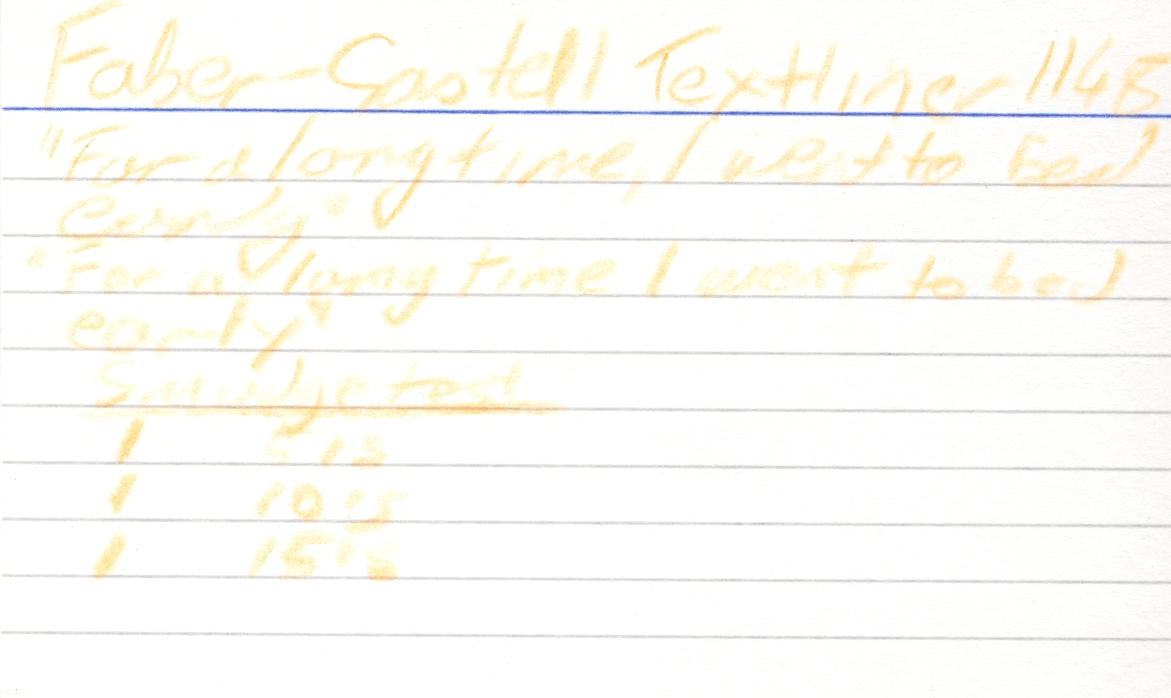 Faber-Castell Textliner 1148
"For a long time, I went to bed
early"
"For a long time I went to bed
early"
Smudge test
1 5's
1 10's
1 15's